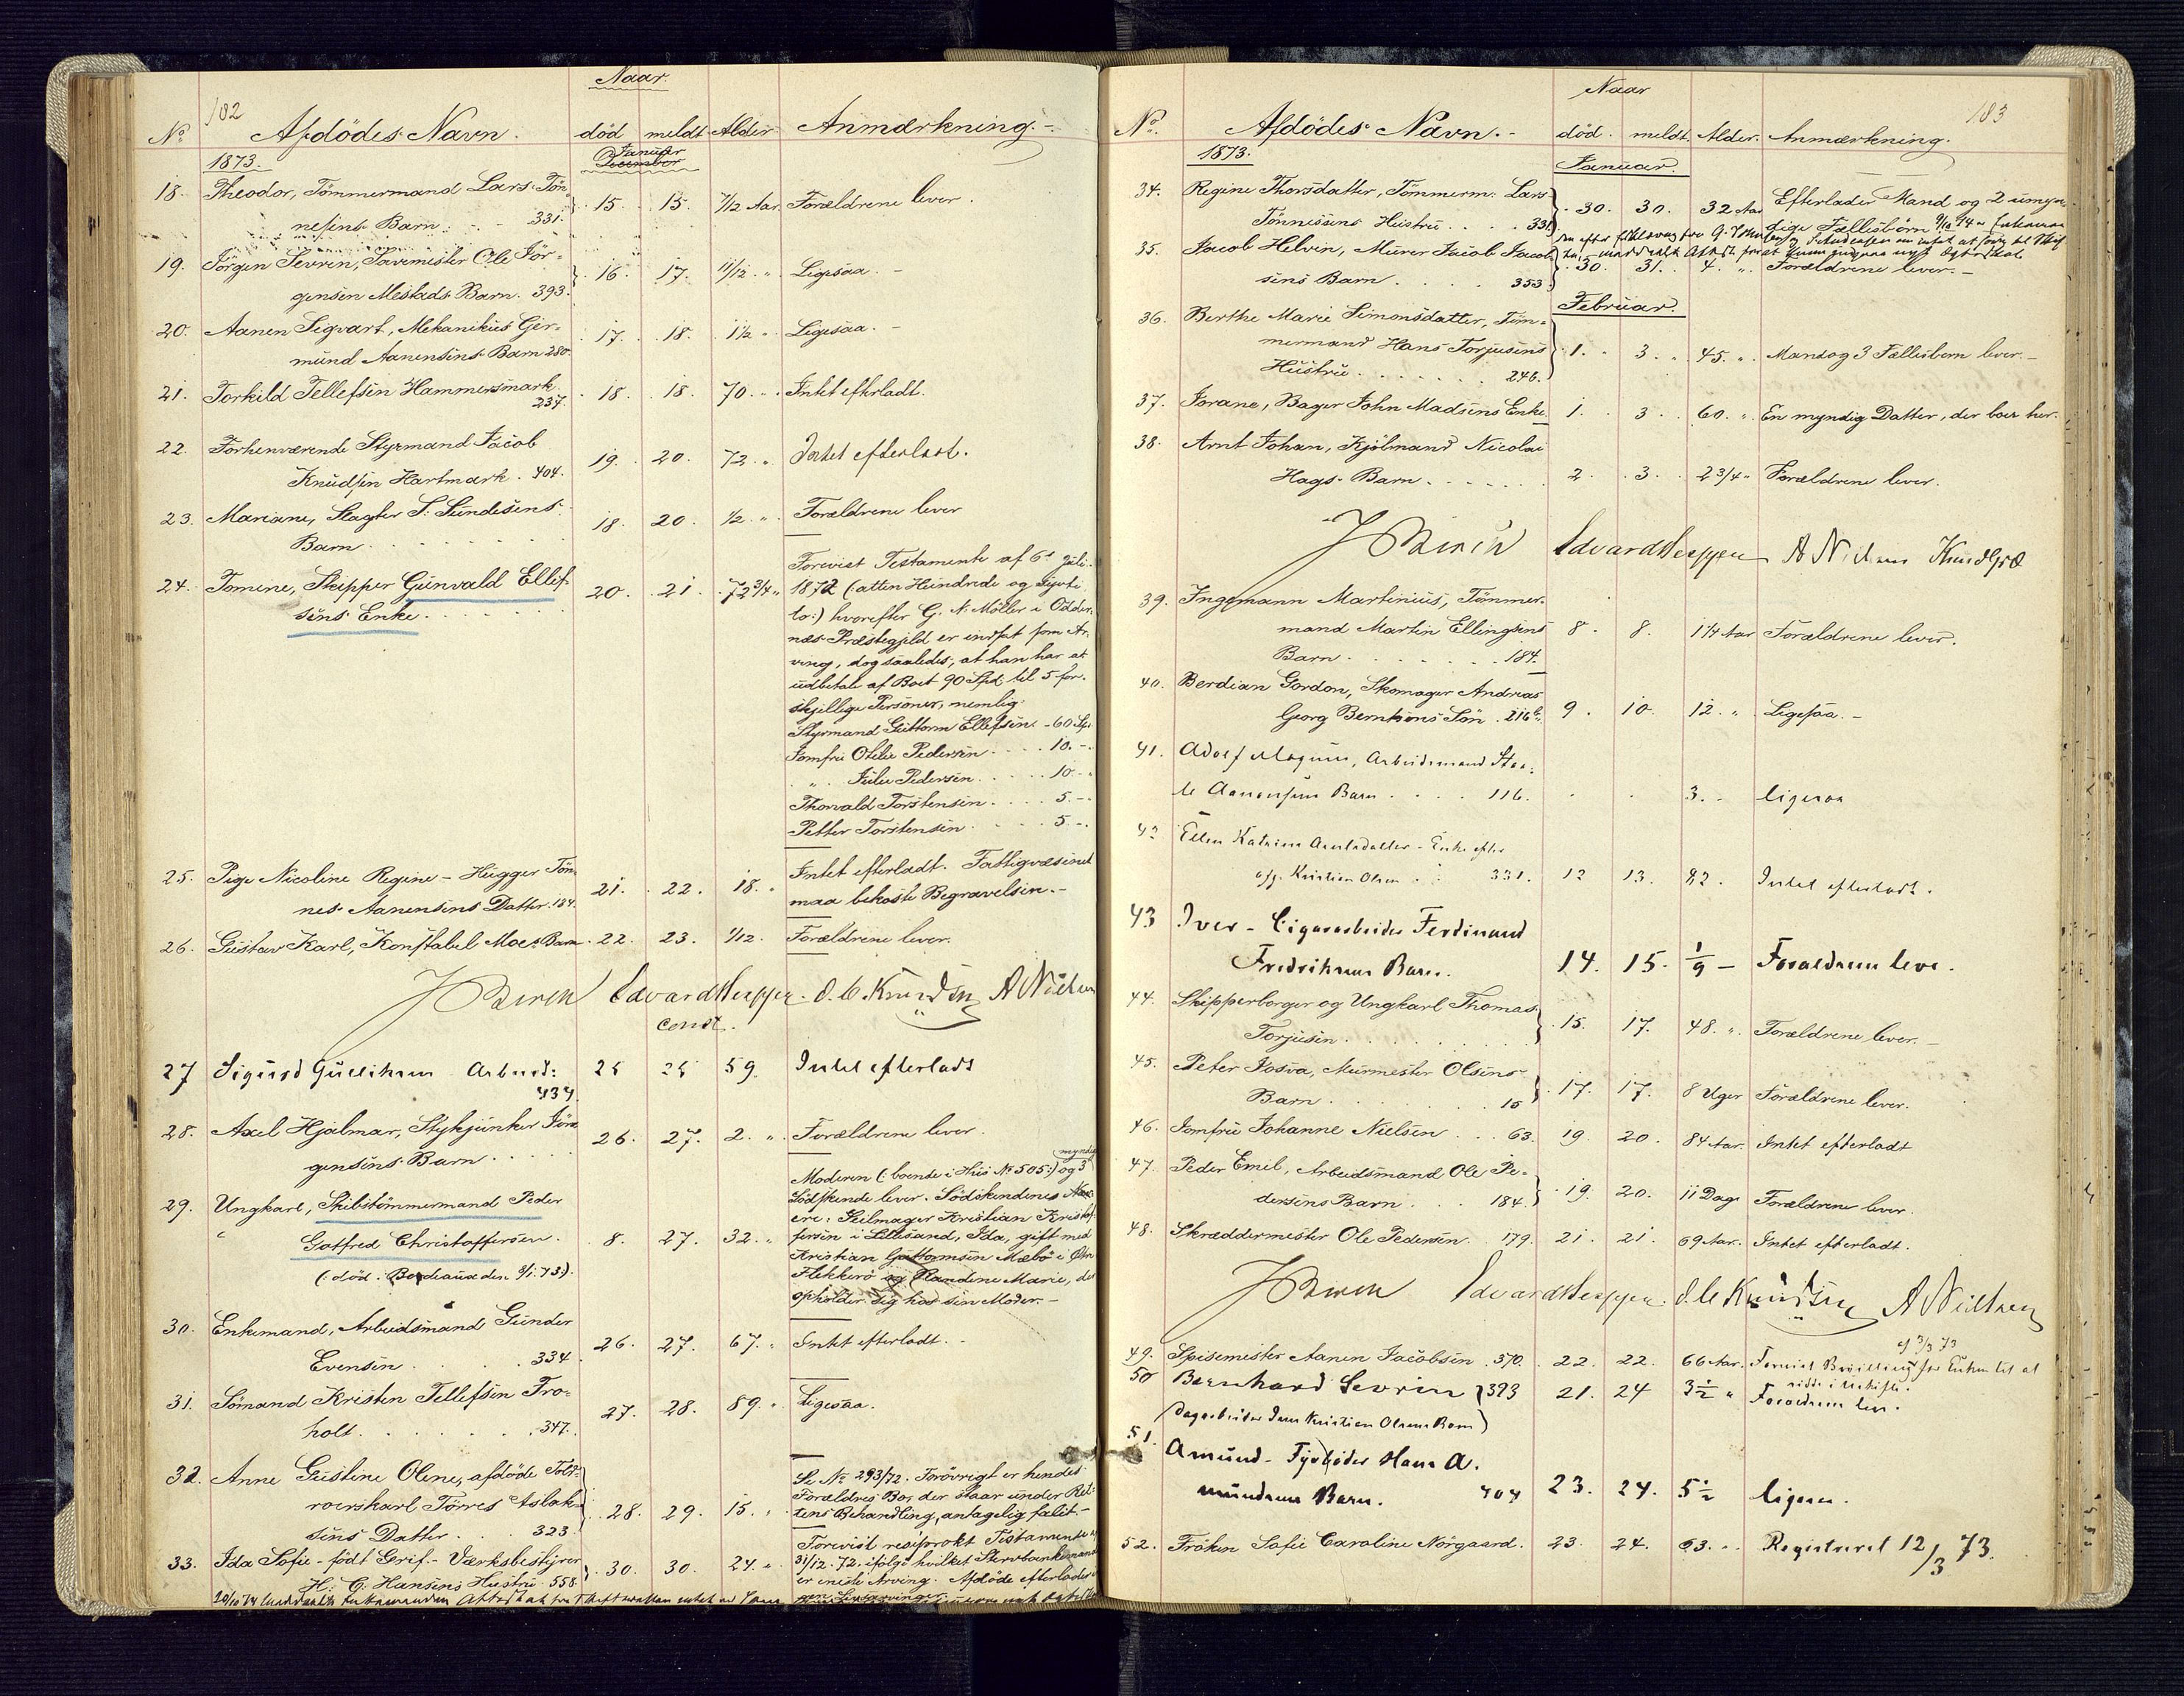 182
Naar.
No Afdödes Navn. död meldt Alder Anmærkning.
1873. Januar
18. Theodor, Tömmermand Lars Tön=
nesens Barn. 331. 15. 15. 7/12 Aar. Forældrene lever.
19. Jörgen Sevrin, Farvemester Ole Jör=
gensen Mestads Barn. 393. 16. 17. 11/12 " Ligesaa.
20. Aanen Sigvart, Mekanikus Ger=
mund Aanensens Barn 280. 17. 18. 1 1/2 " Ligesaa.
21. Torkild Tellefsen Hammersmark.
237. 18. 18. 70. " Intet efterladt.
22. Forhenværende Styrmand Jacob
Knudsen Hartmark. 404. 19. 20. 72. " Intet efterladt.
23. Mariane, Slagter S. Sundesens
Barn 18. 20. 1/2 " Forældrene lever
24. Tomine, Skipper Gunvald Ellef=
sens Enke. 20. 21. 72 3/4 "
Forevist Testamente af 6te Juli
1872 (atten Hundrede og Syvti
to:) hvorefter G. N. Möller i Odder=
næs Præstegjeld er indsat som Ar=
ving, dog saaledes, at han har at
udbetale af Boet 90 Spd til 5 for=
skjellige Personer, nemlig:
Styrmand Guttorm Ellefsen - 60 Spd
Jomfru Otilie Pedersen 10. -
" Julie Pedersen 10 -
Thorvald Torstensen 5. -
Petter Torstensen 5. -
25. Pige Nicoline Regine - Hugger Tön=
nes Aanensens Datter. 184. 21. 22. 18. " Intet efterladt. Fattigvæsenet
maa bekoste Begravelsen. -
26. Gustav Karl, Konstabel Moes Barn. 22. 23. 1/12. Forældrene lever.
J Birch Edvard O. C. Knudsen A Nielsen
const.
27 Sigurd Arbeid: 59. Intet efterladt
434.
28. Axel Hjalmar, Stykjunker Jör=
gensens Barn 26. 27. 2. " Forældrene lever.
29. Ungkarl, Skibstömmermand Peder
Gotfred Christoffersen. 8. 27. 32. "
(: död i Bordeaux den 8/1 73:).
Moderen (: boende i Hus No 505:) og 3 myndige
Södskende lever. Södskendenes Nav=
ere: Seilmager Kristian Kristof=
fersen i Lillesand, Ida, gift med
Kristian Guttormsen Mæbö i Östre
Flekkerö og Randine Marie, der
opholder sig hos sin Moder. -
30. Enkemand, Arbeidsmand Gunder
Evensen 334. 26. 27. 67. " Intet efterladt.
31. Sömand Kristen Tellefsen Tro=
holt. 347. 27. 28. 89. " Ligesaa.
32. Anne Gustine Olene, afdöde Told=
roerskarl Törres Aslak=
sens Datter 323. 28. 29. 15. "
Se No 293/72. Forövrigt er hendes
Forældres Bo, der staar under Ret=
tens Behandling, antagelig fallit. -
33. Ida Sofie - födt Grif. - Værksbestyrer
H. C. Hansens Hustru 558. 30. 30. 24. "
Forevist resiprokt Testamente af
31/12. 72. ifölge hvilket Stervboenkemand
er eneste Arving. Afdöde efterlader
20/10 74
183
Naar
No. Afdödes Navn. - död. meldt. Alder. Anmærkning.
1873. Januar.
34. Regine Thorsdatter, Tömmerm: Lars
Tönnessens Hustru 331. 30. 30. 32 Aar Efterlader Mand og 2 umyn=
dige Fællesbörn
35. Jacob Helvin, Murer Jacob Jacob=
sens Barn 353. 30. 31. 4. " Forældrene lever. -
Februar.
36. Berthe Marie Simonsdatter, Töm=
mermand Hans Torjusens
Hustru 246. 1. 3. 45. " Mand og 3 Fællesbørn lever. -
37. Jorane, Bager John Madsens Enke. 1. 3. 60. " En myndig Datter, der boer her.
38. Arnt Johan, Kjölmand Nicolai
Hags Barn 2. 3. 2 3/4 " Forældrene lever.
J Birch Edvard A Nielsen
39. Ingemann Martinius, Tömmer=
mand Martin Ellingsens
Barn 184. 8. 8. 1 1/4 Aar Forældrene lever.
40. Berdian Gordon, Skomager Andreas
Georg Berntsens Sön. 216 b. 9. 10. 12. " Ligesaa. -
41. Adolf Magnus, Arbeidsmand
Aanensens Barn 116. 3. " ligesaa
42 Ellen Katrine - Enke efter
afg. Kristian Olsen 331. 12 13. 82. Intet efterladt.
43 Iver - Cigararbeider Ferdinand
Fredriksens Barn. 14. 15. 1/9 - Forældrene leve.
44. Skipperborger og Ungkarl Thomas
Torjusen 15. 17. 48. " Forældrene lever. -
45. Peter Josva, Murmester Olsens
Barn 10 17. 17. 8 Uger Forældrene lever.
46. Jomfru Johanne Nielsen 63. 19. 20. 84 Aar. Intet efterladt
47. Peder Emil, Arbeidsmand Ole Pe=
dersens Barn 184. 19. 20. 11 Dage Forældrene lever.
48. Skræddermester Ole Pedersen. 179. 21. 21. 69 Aar. Intet efterladt.
J Birch Edvard O. C. Knudsen A Nielsen
49. Spisemester Aanen Jacobsen. 370. 22. 22. 66 Aar. Forevist Bevilling af 3/3 73 for Enken til at
sidde i uskiftet
50 Bernhard Sevrin 393 21. 24 3 1/2 " Forældrene lever.
(Dagarbeider Jens Kristian Olsens Barn)
51. Amund - Fyrböder Hans A.
mundsens Barn. 404 23. 24. 5 1/2 ligesaa.
52. Fröken Sofie Caroline Nörgaard. 23. 24. 63. " Registreret 12/3 73.